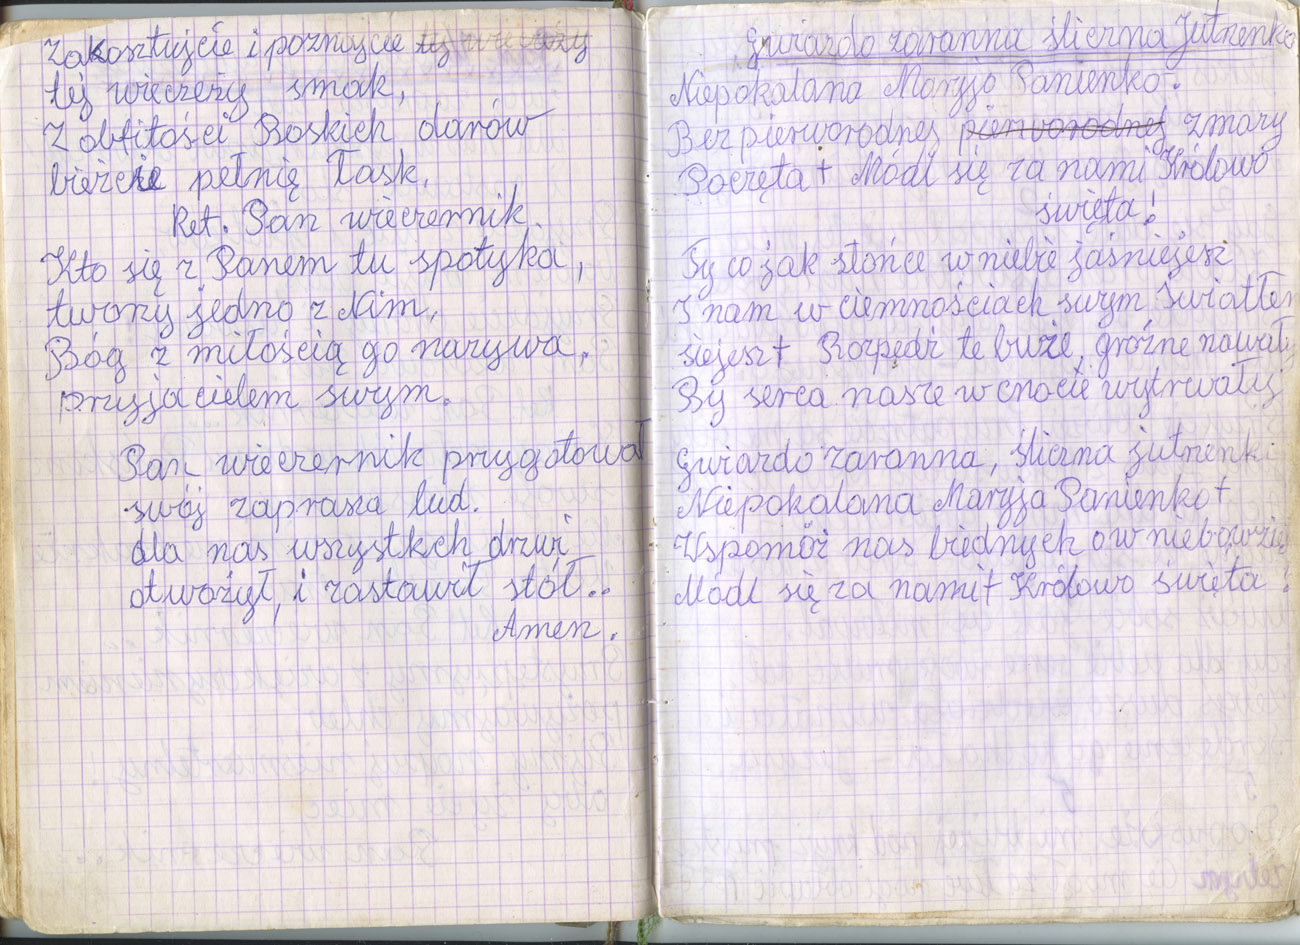 Zakosztujcie i poznajcie tej wieczeży
tej wieczeży smak,
Z obfitości Boskich darów
bieżcie pełnię Łask.
Ref. Pan wieczernik
Kto się z Panem tu spotyka,
tworzy jedno z Nim,
Bóg z miłością go nazywa,
przyjacielem swym.
Pan wieczernik przygotował
swój zaprasza lud.
dla nas wszystkch drzwi
otwożył, i zastawił stół..
Amen.
Gwiazdo zaranna śliczna Jutrzenko
Niepokalana Maryjo Panienko!
Bez pierworodnej pierworodnej zmazy
Poczęta + Módl się za nami Królowo
święta!
Ty co jak słońce w niebie jaśniejesz
I nam w ciemnościach swym światłem
siejesz + Rozpędź te buże, groźne nawały
By serca nasze w cnocie wytrwały
Gwiazdo zaranna, śliczna jutrzenki
Niepokalana Maryja Panienko +
Wspomóż nas biednych o w niebowzię
Módl się za nami + Królowo święta!